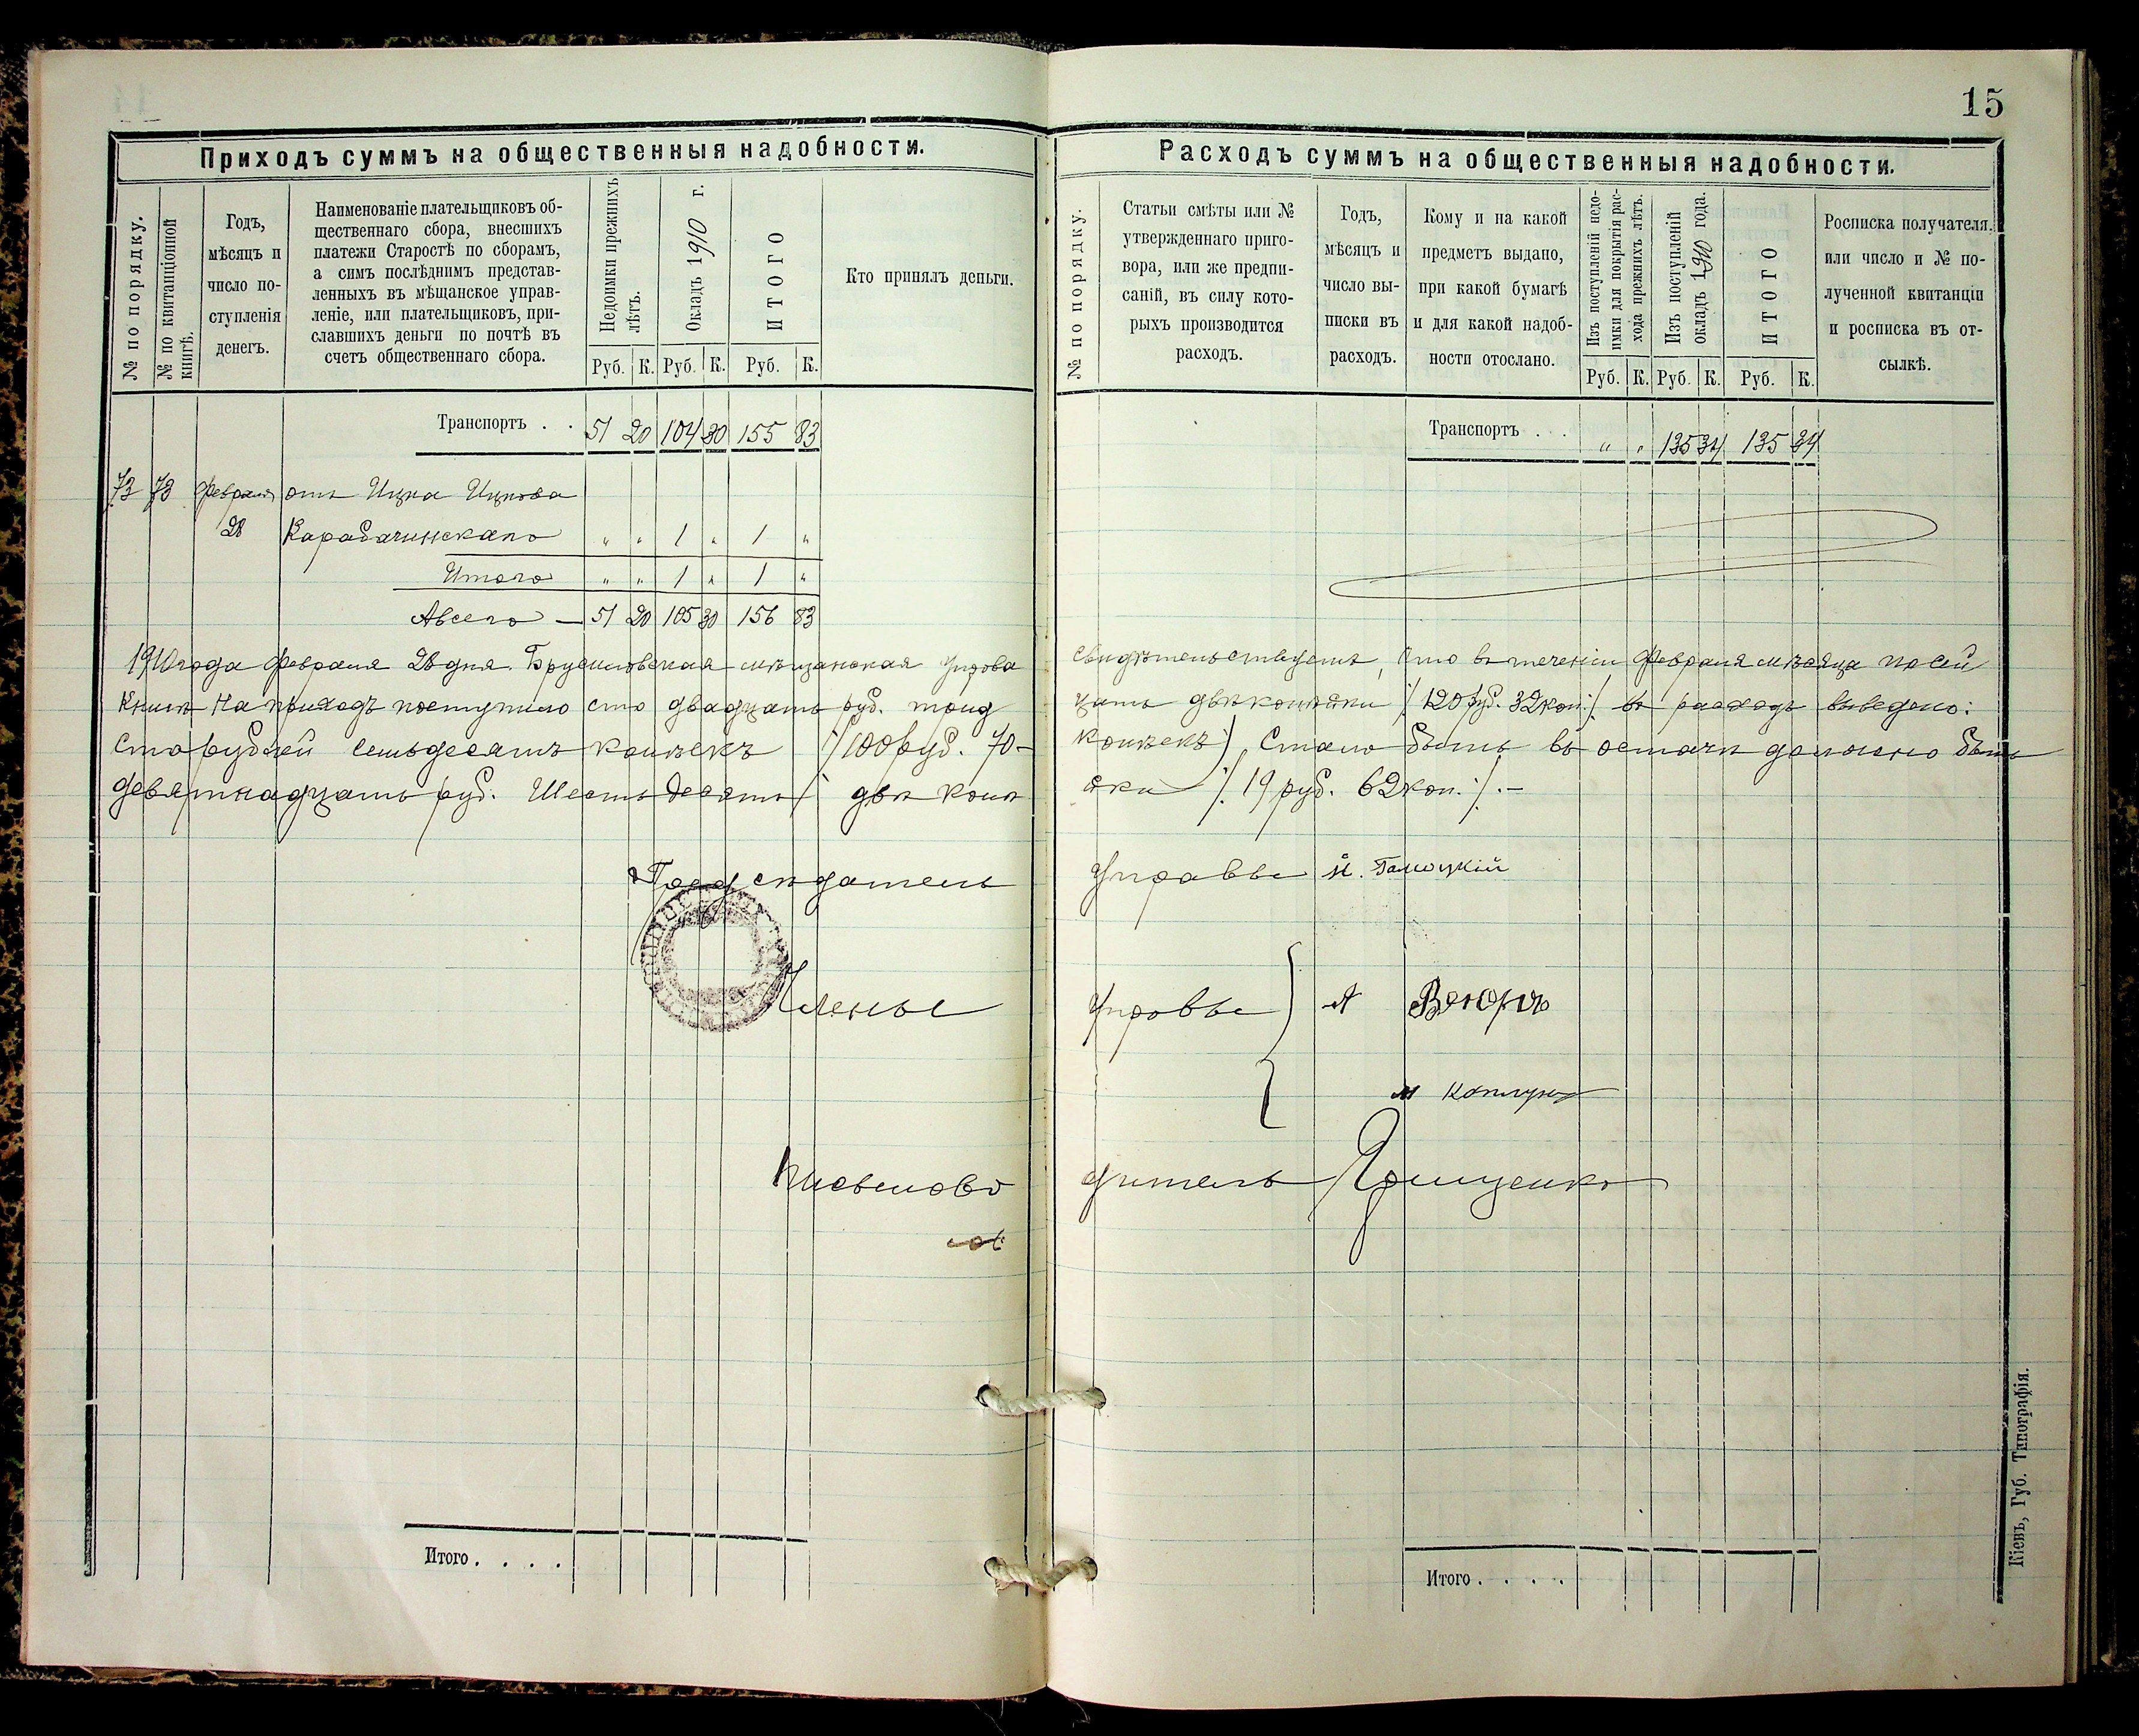 15
Приходъ суммъ на общественныя надобности.
№ по порядку.
№ по квитанціонной книгѣ.
Годъ,
мѣсяцъ и
число по-
ступленія
денегъ.
Наименованіе плательщиковъ об-
щественнаго сбора, внесшихъ
платежи Старостѣ по сборамъ,
а симъ послѣднимъ представ-
ленныхъ въ мѣщанское управ-
леніе, или плательщиковъ, при-
славшихъ деньги по почтѣ въ
счетъ общественнаго сбора.
Недоимки прежнихъ
лѣтъ.
Окладъ 1910 г.
ИТОГО
Кто принялъ деньги.
Руб. К. Руб. К. Руб. К.
Транспортъ . . 51 20 104 30 155 83
73 73 Февраля отъ Ицка Ицкова
28 Карабачинскаго " " 1 " 1 "
Итого " " 1 " 1 "
А всего — 51 20 105 30 156 83
Расходъ суммъ на общественныя надобности.
№ по порядку.
Статьи смѣты или №
утвержденнаго приго-
вора, или же предпи-
саній, въ силу кото-
рыхъ производится
расходъ.
Годъ,
мѣсяцъ и
число вы-
писки въ
расходъ.
Кому и на какой
предметъ выдано,
при какой бумагѣ
и для какой надоб-
ности отослано.
Изъ поступленій недо-
имки для покрытія рас-
хода прежнихъ лѣтъ.
Изъ поступленій
окладъ 1910 года.
ИТОГО
Росписка получателя,
или число и № по-
лученной квитанціи
и росписка въ от-
сылкѣ.
Руб. К. Руб. К. Руб. К.
Транспортъ . . . " " 135 34 135 34
1910 года Февраля 28 дня. Брусиловская мѣщанская Управа свидѣтельствуетъ, что въ теченіи Февраля мѣсяца по сей
книгѣ на приходъ поступило сто двадцать руб. тридцать двѣ копѣйки /120 руб. 32 коп./ въ расходъ выведено:
сто рублей семьдесятъ копѣекъ /100 руб. 70 – копѣекъ) стало быть въ остачи должно быть
девятнадцать руб. Шестьдесятъ двѣ копѣйки /19 руб. 62 коп./.–
Предсѣдатель Управы
Члены Управы } А
М
Письмоводитель Грищенко
Итого . . . .
Итого . . . .
Кіевъ, Губ. Типографія.